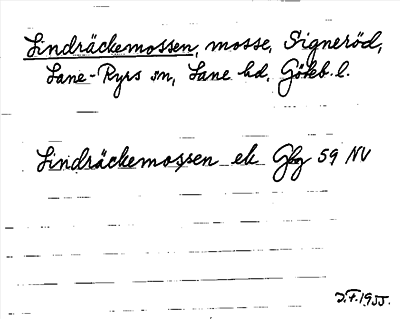 Lindräckemossen, mosse, Signeröd,
Lane-Ryrs sn, Lane hd, Göteb. l.
Lindräckemossen ek Gbg 59 NV
J.F.1955.